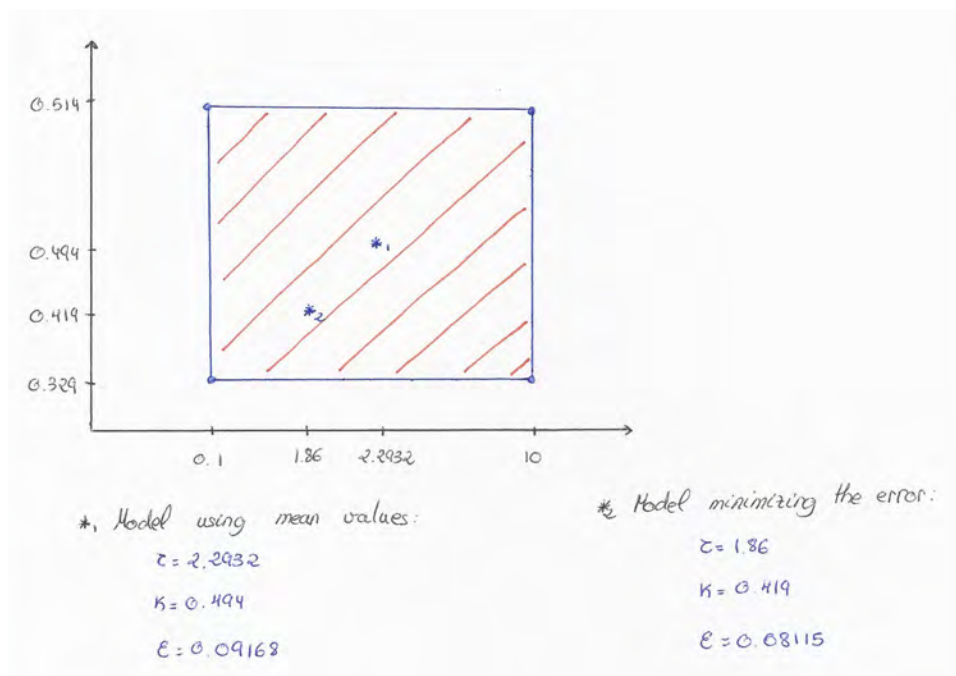 0.514
0.494
0.419
0.329
*1
*2
0.1 1.86 2.2932 10
*1 Model using mean values:
τ = 2.2932
K = 0.494
ε = 0.09168
*2 Model minimizing the error:
τ = 1.86
K = 0.419
ε = 0.08115